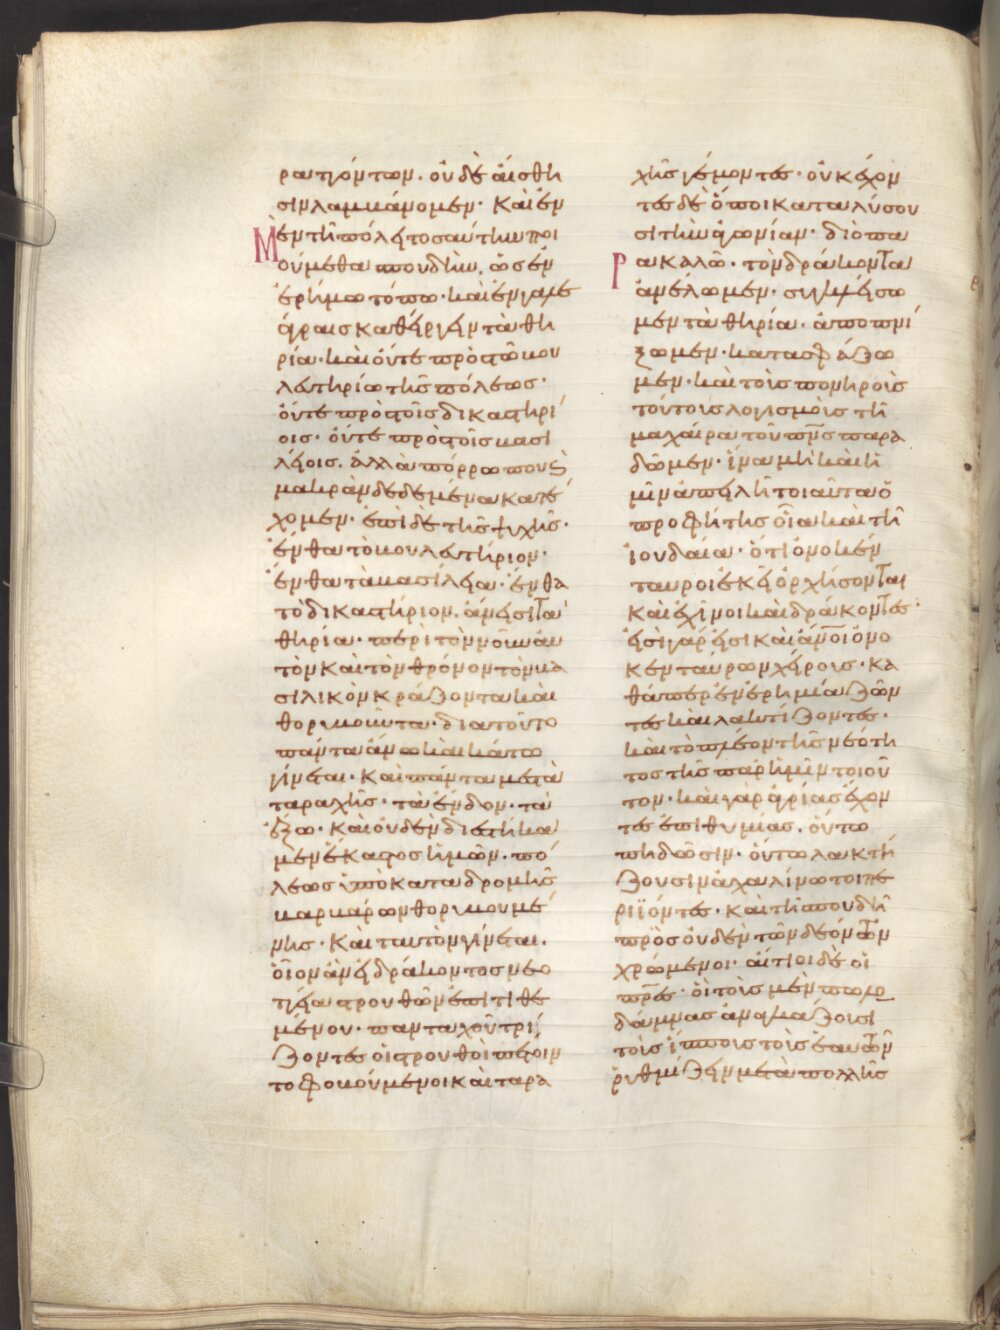 ραττόντων. οὐδὲ ἀίσθη
σιν λαμβάνομεν· Καὶ ἐν
Μὲν τῆ πόλει τοσαύτην ποι
ούμεθα σπουδὴν. ὡς ἐν
ἐρήμω τόπω· καὶ ἐν γαλε
άγραις καθείργειν τὰ θη
ρία· καὶ οὔτε πρὸς τῶ βου
λευτηρίω τῆς πόλεως·
οὔτε πρὸς τοῖς δικαστηρί
οις· οὔτε πρὸς τοῖς βασι
λείοις. ἀλλὰ πόρρω που
μακρὰν δεδεμένα κατέ
χομεν· ἐπὶ δὲ τῆς ψυχῆς·
ἔνθα τὸ βουλευτήριον·
ἔνθα τὰ βασίλεια· ἔνθα
τὸ δικαστήριον. ἀνεῖται
θηρία· περὶ τὸν νοῦν αυ
τὸν καὶ τὸν θρόνον τὸν βα
σιλικὸν κράζοντα καὶ
θορυβοῦντα· διατοῦτο
πάντα ἄνω καὶ κάτω
γίνεται. Καὶ πάντα μετὰ
ταραχῆς· τὰ ἔνδον· τὰ
ἔξω· καὶ οὐδὲν διεστήκα
μεν ἕκαστος ἡμῶν· πό
λεως ὑπὸ καταδρομῆς
βαρβάρων θορυβουμέ
νης· Καὶ ταυτὸν γίνεται.
οἷον ἀνεὶ δράκοντος νεο
ττείᾳ στρουθῶν ἐπιτιθε
μένου· πανταχοῦ τρί
ζοντες οἱ στρουθοὶ πέτοιν
το φοβούμενοι καὶ ταρα
χῆς γέμοντες· οὐκ ἔχον
τες δὲ ὅποι καταλύσου
σι τὴν ἀγωνίαν· διὸ πα
Ρακαλῶ· τὸν δράκοντα
ἀνέλωμεν· συγκλείσω
μεν τὰ θηρία. ἀποπνί
ξωμεν· κατασφάξω
μεν· καὶ τοὺς πονηροὺς
τούτους λογισμοὺς τῆ
μαχαίρα τοῦ πνς παρα
δῶμεν· ἵνα μὴ καὶ ἡ
μῖν ἀπειλῆ τοιαῦτα ὁ
προφήτης οἷα καὶ τῆ
ἰουδαία· ὅτι ὀνοκέν
ταυροι ἐκεῖ ὀρχήσονται
καὶ ἐχῖνοι καὶ δράκοντες·
εἰσὶ γάρ εἰσι καὶ ἄνοι ὀνο
κενταύρων χείρους· κα
θάπερ ἐν ἐρημία ζῶν
τες καὶ λακτίζοντες·
καὶ τὸ πλέον τῆς νεότη
τος τῆς παρ ἡμῖν τοιοῦ
τον· καὶ γὰρ ἀγρίας ἔχον
τες ἐπιθυμίας. οὕτω
πηδῶσιν· οὕτω λακτί
ζουσιν ἀχαλίνωτοι πε
ριϊόντες· καὶ τῆ σπουδῆ
πρὸς οὐδὲν τῶν δεόντων
χρώμενοι· αἴτιοι δὲ οἱ
πρες· οἳ τοὺς μὲν πωλο
δάμνας ἀναγκάζουσι
τοὺς ἵππους τοὺς ἑαυτῶν
ῥυθμίζειν μετὰ πολλῆς